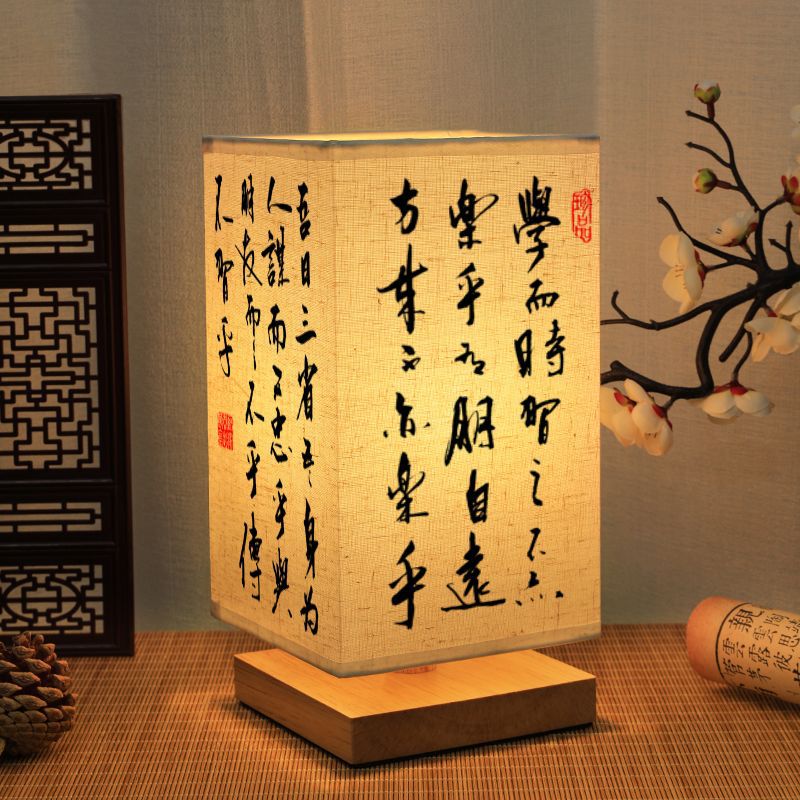 珍品
學而時習之不亦
樂乎有朋自遠
方來不亦樂乎
吾日三省吾身为
人謀而不忠乎與
朋友而不乎傳
不習乎